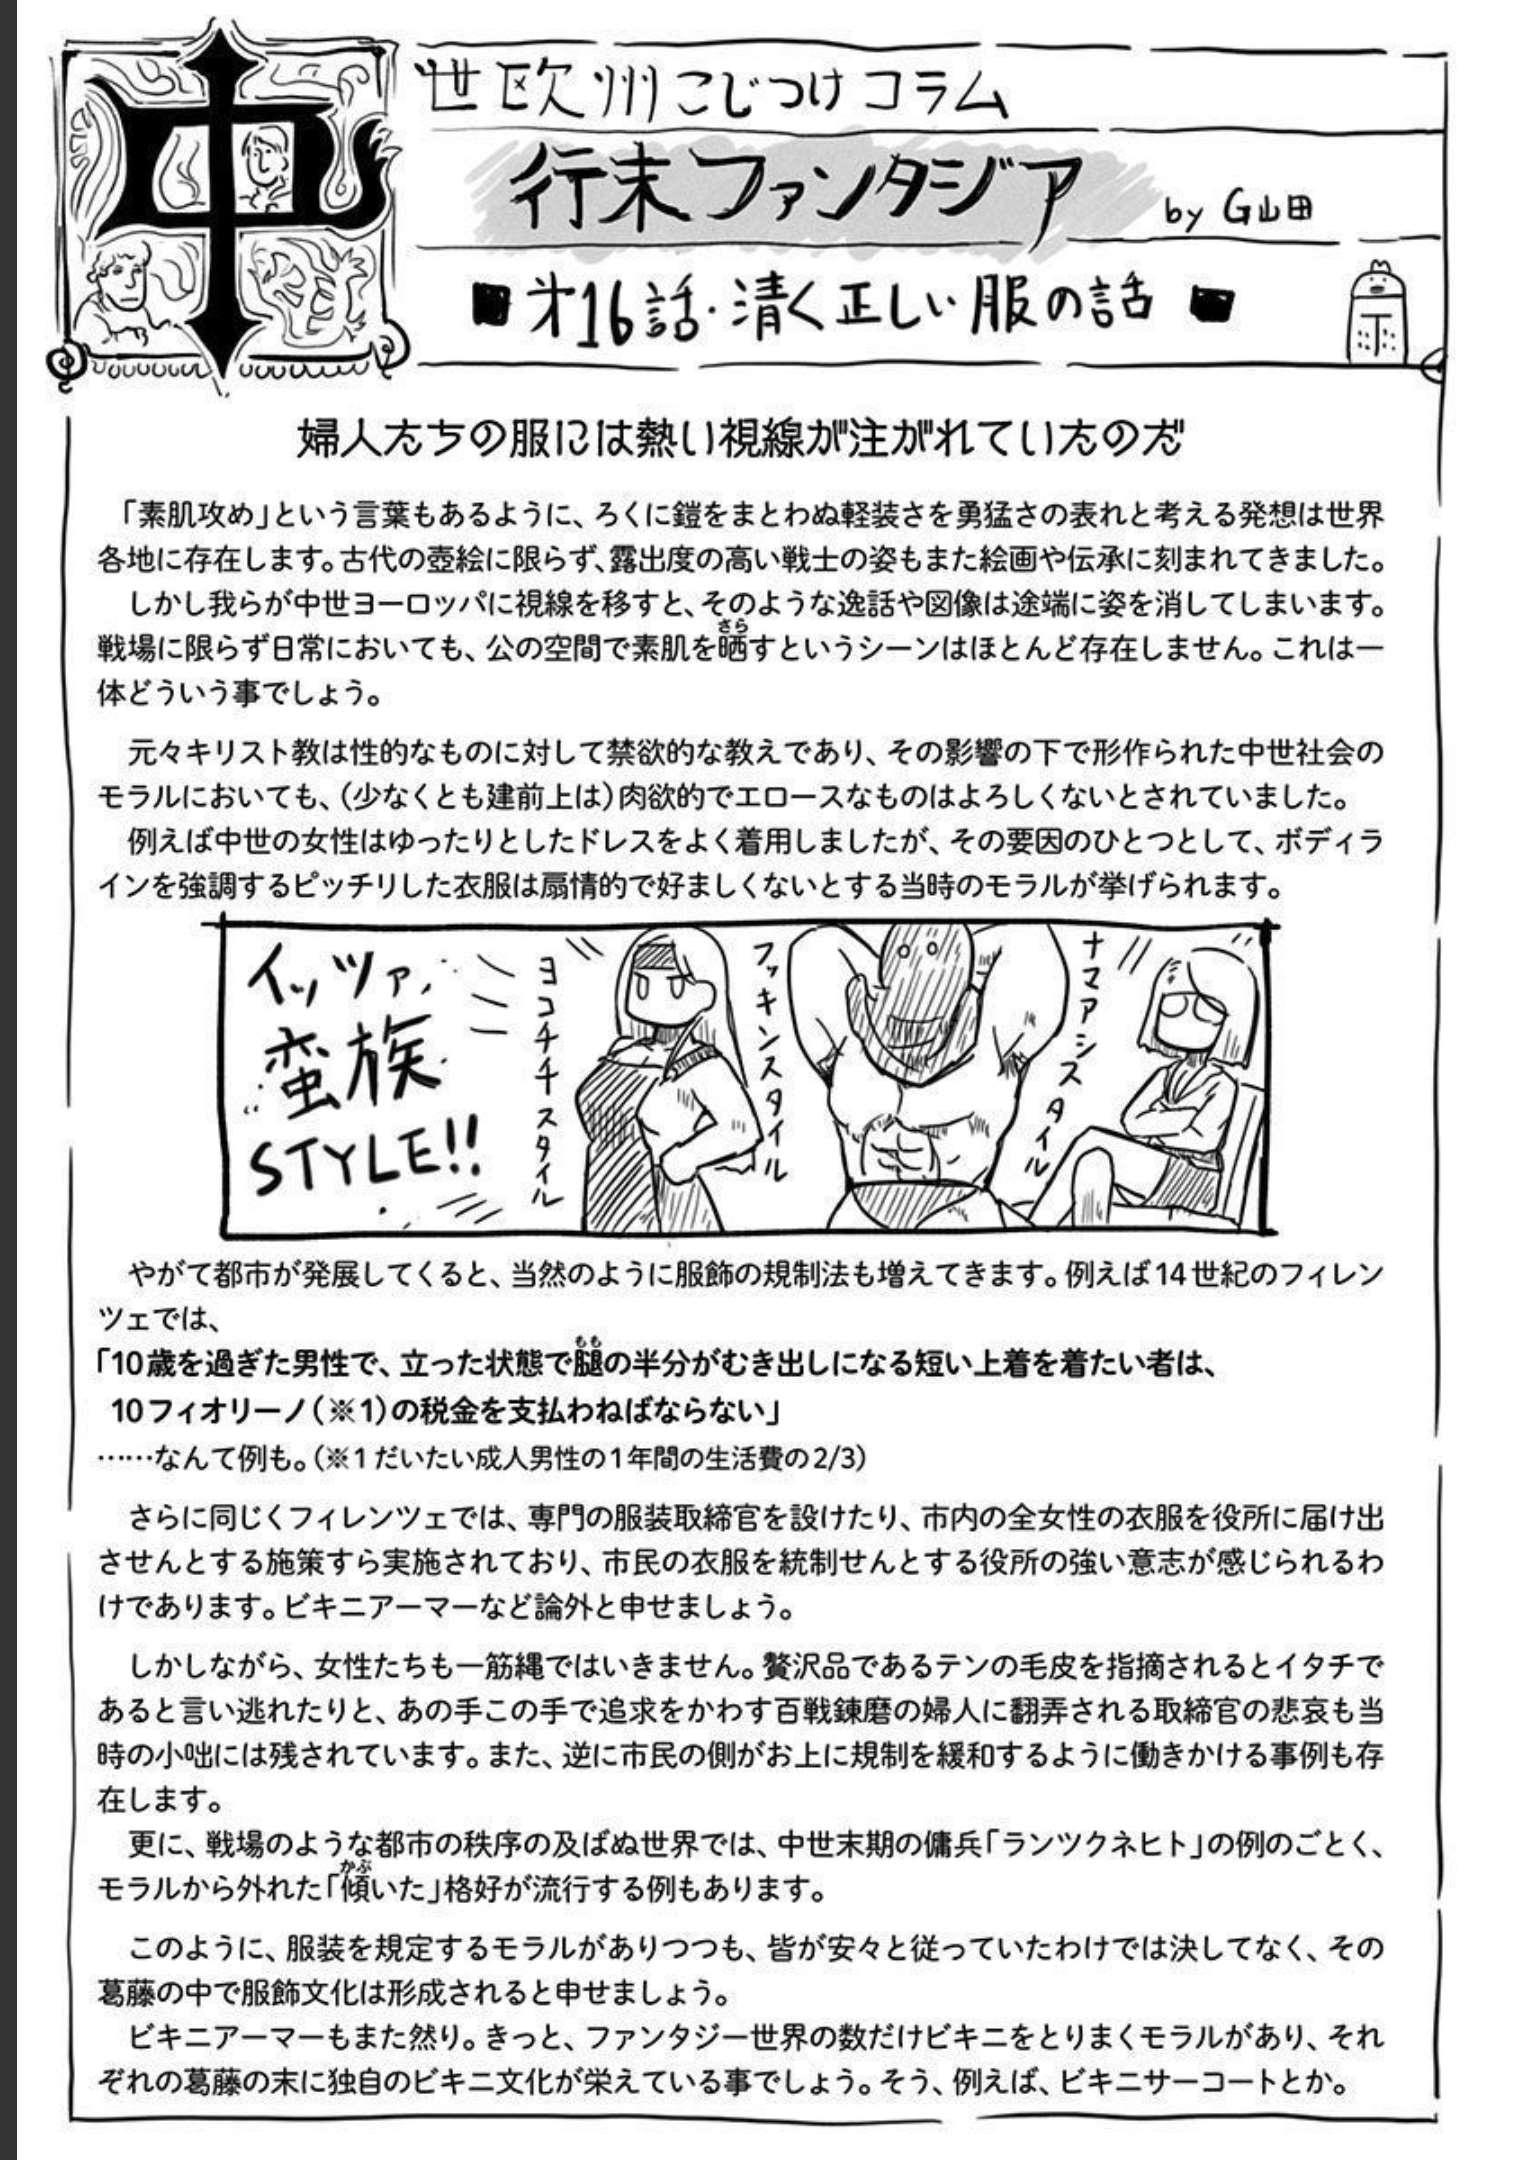 中世欧州こじつけコラム
行末ファンタジア by G山田
■第16話・清く正しい服の話■
婦人たちの服には熱い視線が注がれていたのだ
「素肌攻め」という言葉もあるように、ろくに鎧をまとわぬ軽装さを勇猛さの表れと考える発想は世界
各地に存在します。古代の壺絵に限らず、露出度の高い戦士の姿もまた絵画や伝承に刻まれてきました。
しかし我らが中世ヨーロッパに視線を移すと、そのような逸話や図像は途端に姿を消してしまいます。
さら
戦場に限らず日常においても、公の空間で素肌を晒すというシーンはほとんど存在しません。これは一
体どういう事でしょう。
元々キリスト教は性的なものに対して禁欲的な教えであり、その影響の下で形作られた中世社会の
モラルにおいても、（少なくとも建前上は）肉欲的でエロースなものはよろしくないとされていました。
例えば中世の女性はゆったりとしたドレスをよく着用しましたが、その要因のひとつとして、ボディラ
インを強調するピッチリした衣服は扇情的で好ましくないとする当時のモラルが挙げられます。
イッツァ,
蛮族
STYLE!!
ヨコチチスタイル
フッキンスタイル
ナマアシスタイル
やがて都市が発展してくると、当然のように服飾の規制法も増えてきます。例えば14世紀のフィレン
ツェでは、
もも
「10歳を過ぎた男性で、立った状態で腿の半分がむき出しになる短い上着を着たい者は、
10フィオリーノ（※1）の税金を支払わねばならない」
……なんて例も。（※1だいたい成人男性の1年間の生活費の2/3）
さらに同じくフィレンツェでは、専門の服装取締官を設けたり、市内の全女性の衣服を役所に届け出
させんとする施策すら実施されており、市民の衣服を統制せんとする役所の強い意志が感じられるわ
けであります。ビキニアーマーなど論外と申せましょう。
しかしながら、女性たちも一筋縄ではいきません。贅沢品であるテンの毛皮を指摘されるとイタチで
あると言い逃れたりと、あの手この手で追求をかわす百戦錬磨の婦人に翻弄される取締官の悲哀も当
時の小咄には残されています。また、逆に市民の側がお上に規制を緩和するように働きかける事例も存
在します。
更に、戦場のような都市の秩序の及ばぬ世界では、中世末期の傭兵「ランツクネヒト」の例のごとく、
かぶ
モラルから外れた「傾いた」格好が流行する例もあります。
このように、服装を規定するモラルがありつつも、皆が安々と従っていたわけでは決してなく、その
葛藤の中で服飾文化は形成されると申せましょう。
ビキニアーマーもまた然り。きっと、ファンタジー世界の数だけビキニをとりまくモラルがあり、それ
ぞれの葛藤の末に独自のビキニ文化が栄えている事でしょう。そう、例えば、ビキニサーコートとか。